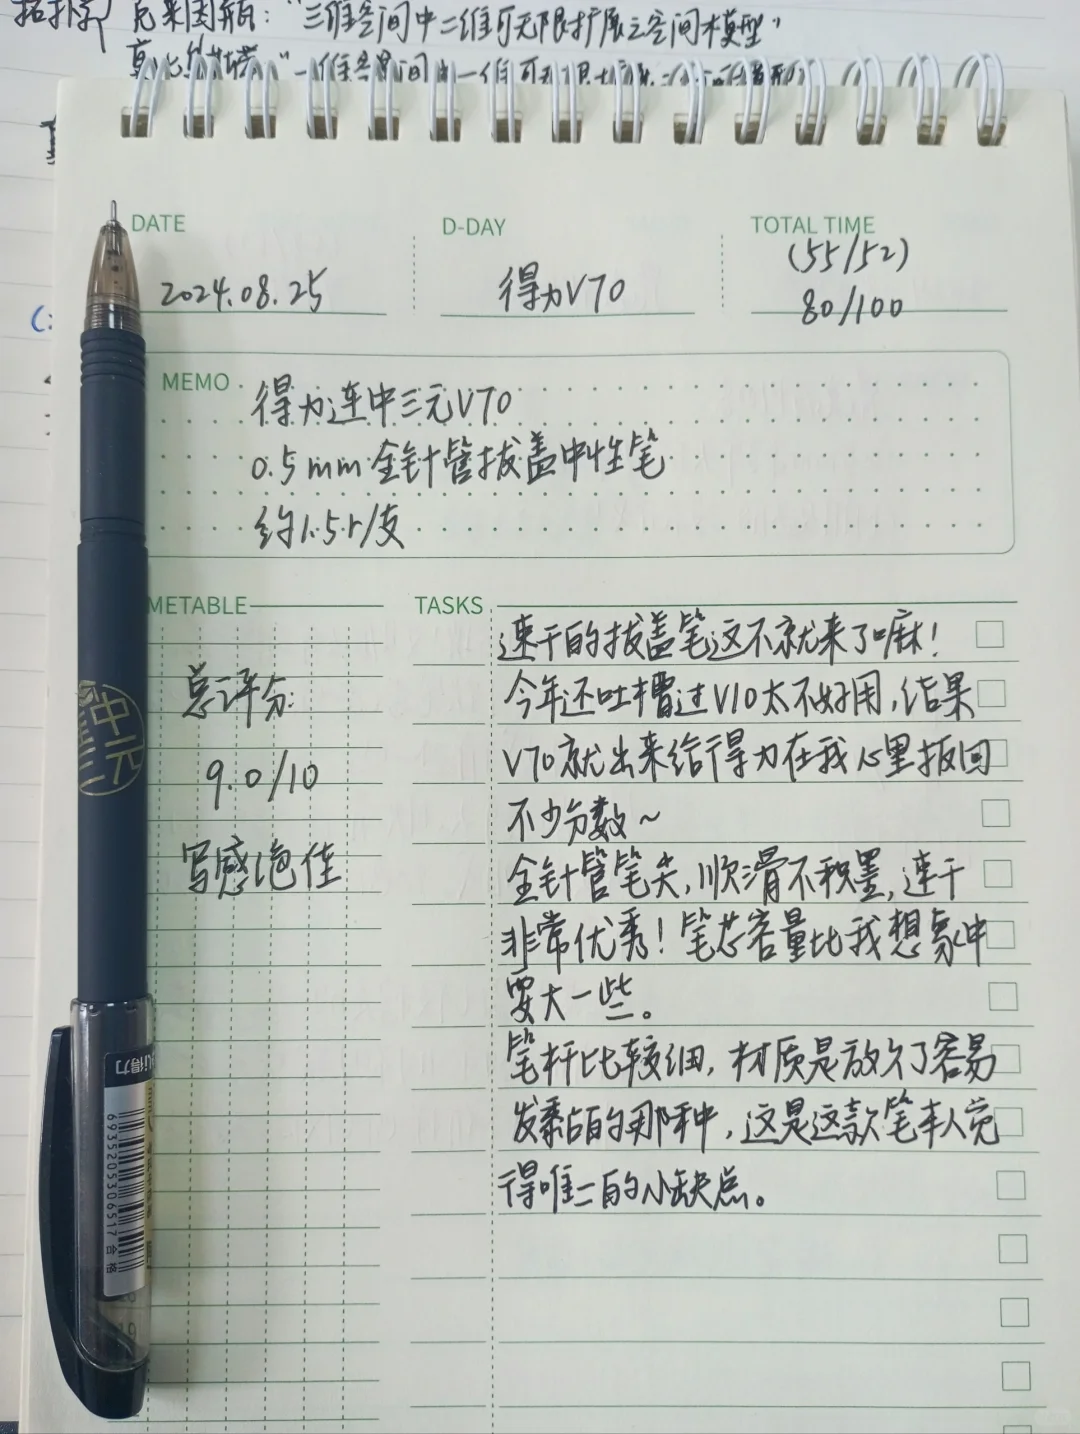 拓扑学 克莱因瓶："三维空间中二维可无限扩展之空间模型"
DATE
D-DAY
TOTAL TIME
(55/52)
2024.08.25
得力V70
80/100
MEMO
得力连中三元V70
0.5mm 全针管拔盖中性笔
约1.5r/支
METABLE
TASKS
总评分:
9.0/10
写感绝佳
速干的拔盖笔这不就来了嘛！
今年还吐槽过V10太不好用,结果
V70就出来给得力在我心里扳回
不少分数~
全针管笔尖,顺滑不积墨,速干
非常优秀！笔芯容量比我想象中
要大一些。
笔杆比较细,材质是放久了容易
发黏的那种,这是这款笔本人觉
得唯一的小缺点。
连中三元
得力
6935205306517 合格